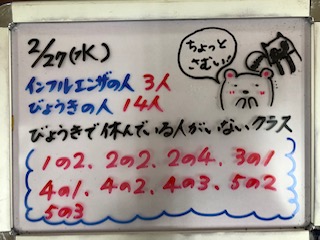 2/27(水)
ちょっと
さむい!!
インフルエンザの人 3人
びょうきの人 14人
びょうきで休んでいる人がいないクラス
1の2、2の2、2の4、3の1
4の1、4の2、4の3、5の2
5の3